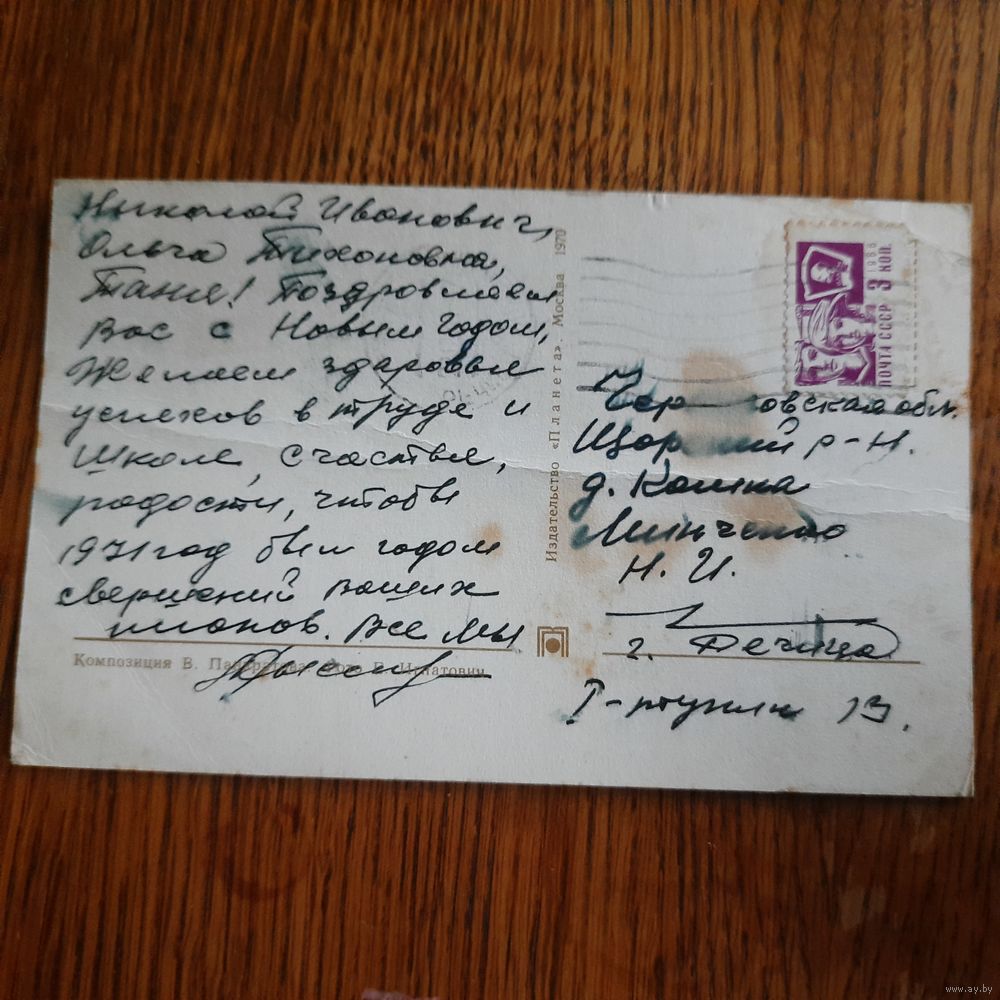 Николай Иванович,
Ольга Тихоновна,
Таня! Поздравляем
Вас с Новым годом,
Желаем здоровья
успехов в труде и
школе, счастья,
радости, чтобы
1971 год был годом
свершений ваших
планов. Все мы
Композиция В. Фото Б. Игнатович
Издательство «Планета». Москва 1970
ПОЧТА СССР 3 коп.
1966
обл.
р-н.
д.
Минченко
Н. И.
г. Речица
13.
www.ay.by